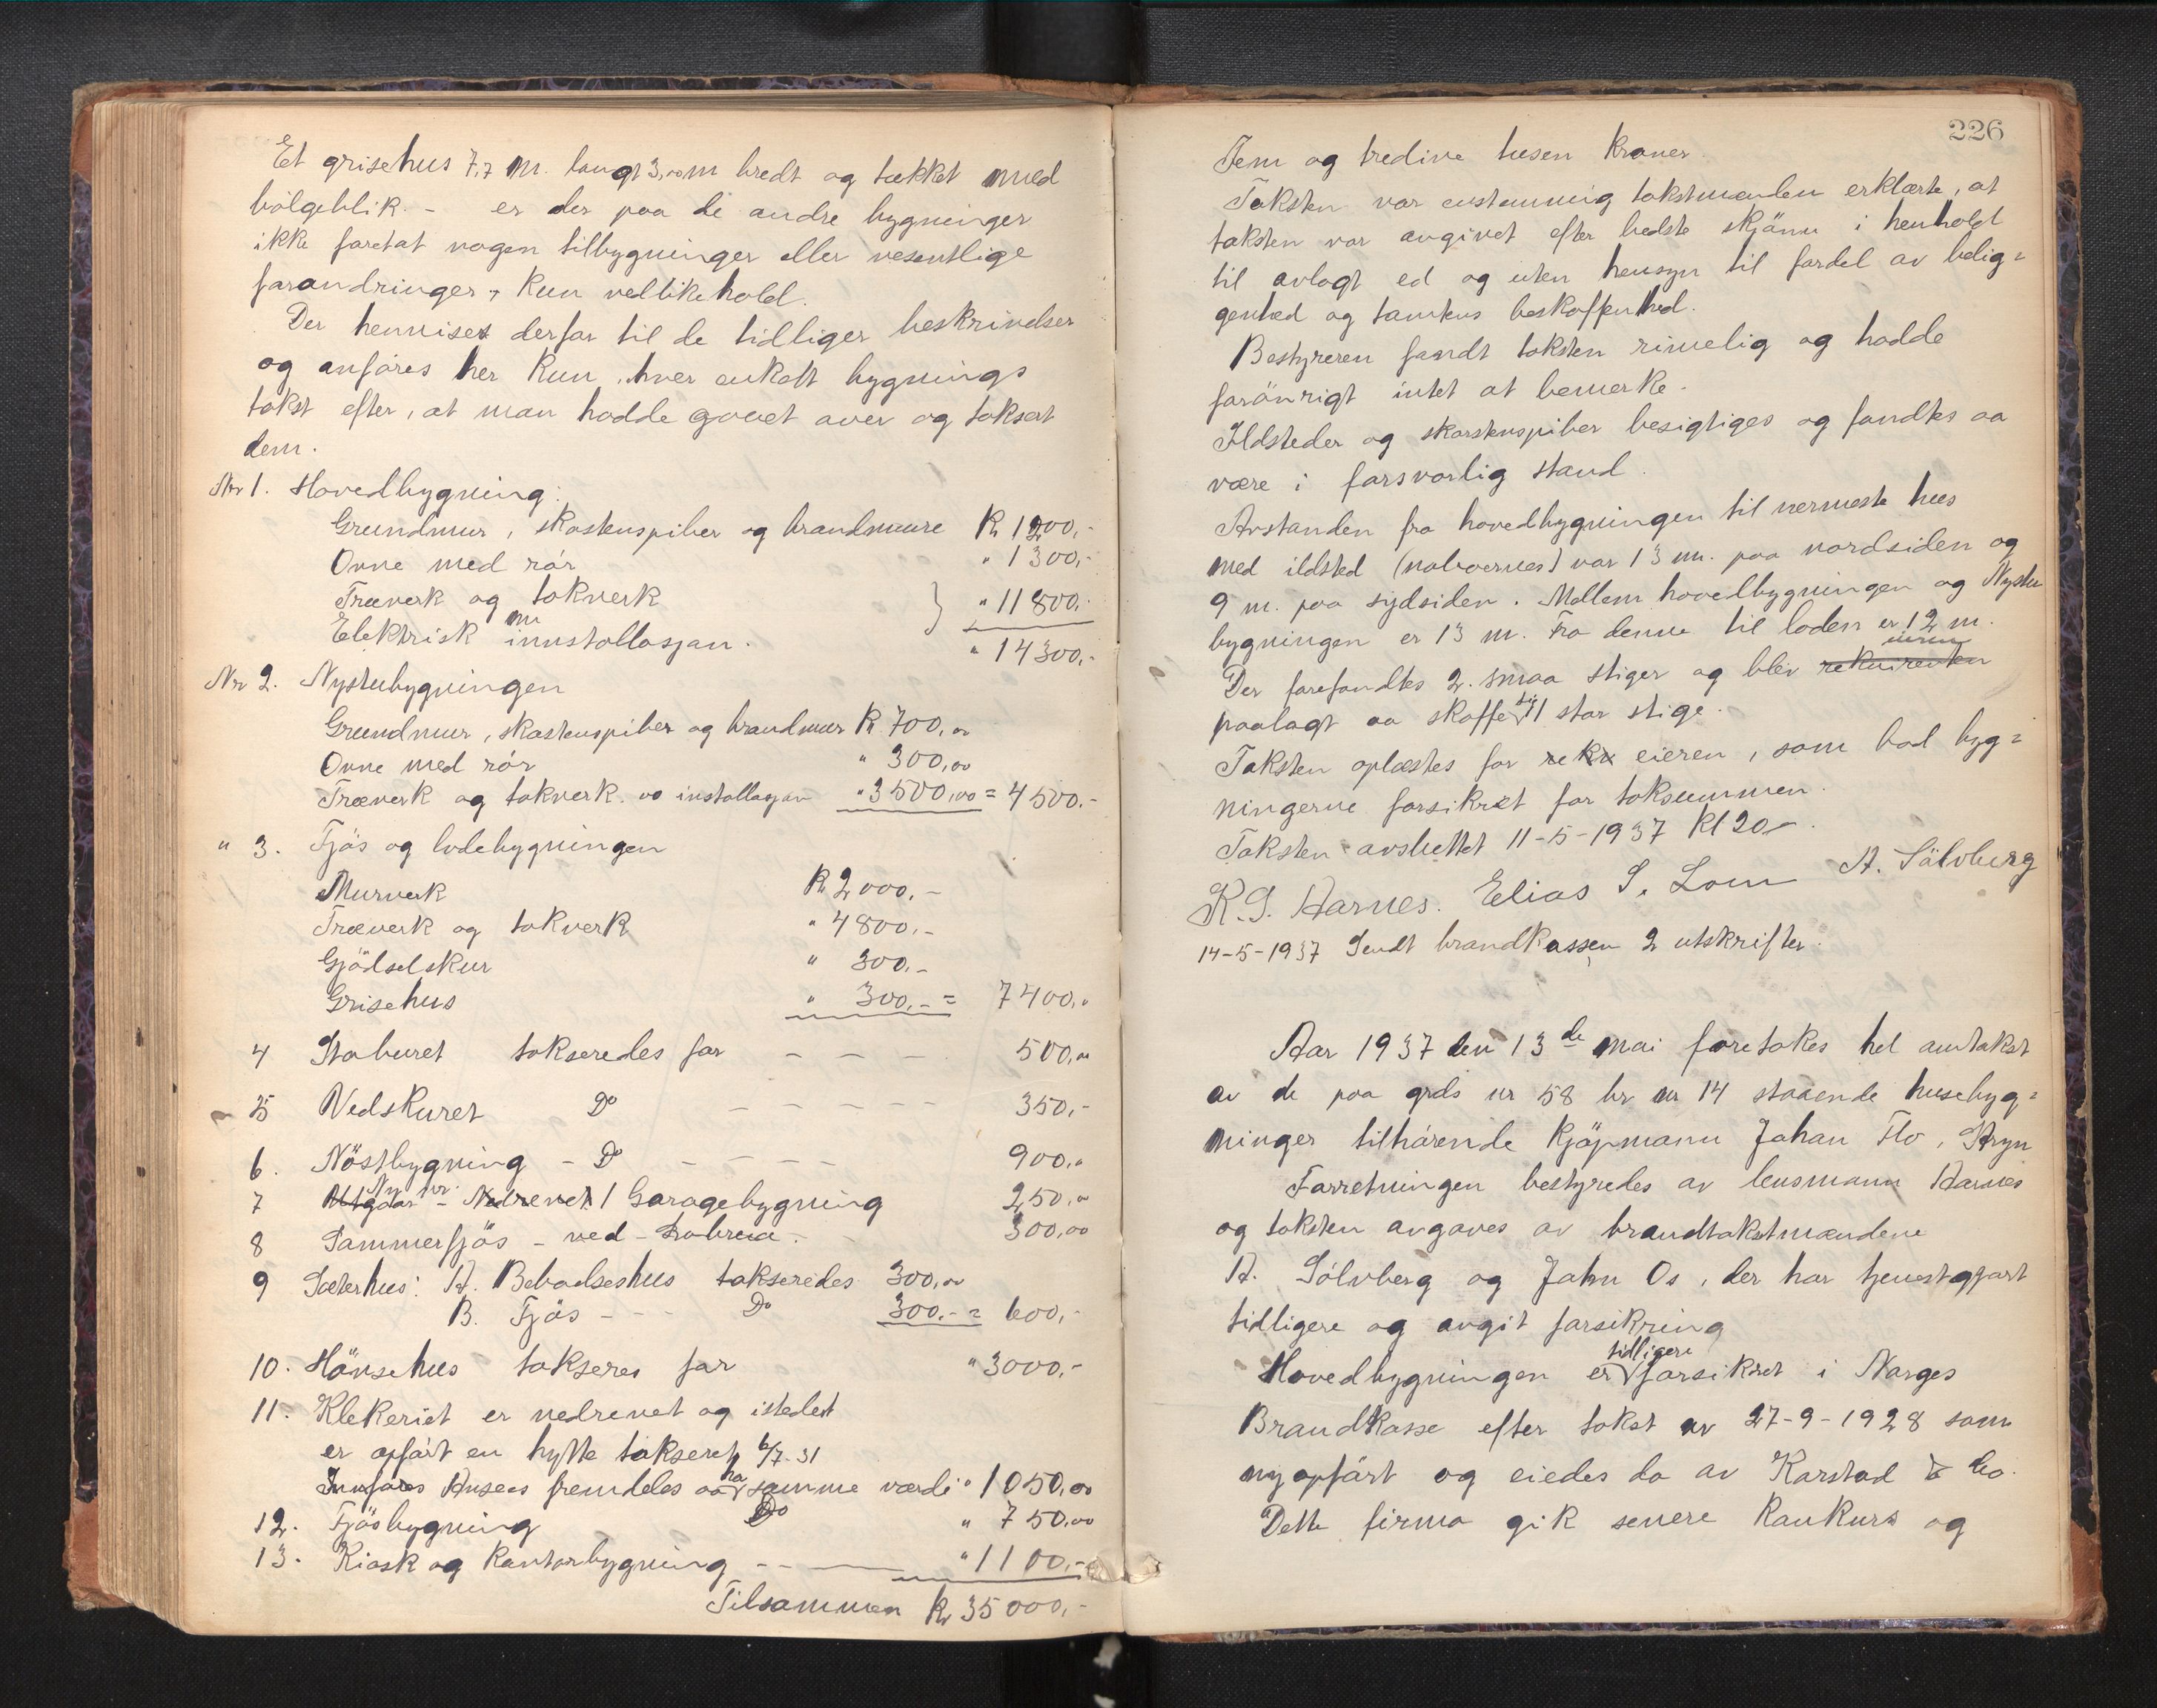 Et grisehus 7,7 m. langt 3,00 m bredt og tækket med
bölgeblik. - er der paa de andre bygninger
ikke foretat nogen tilbygninger eller vesentlige
forandringer, kun vedlikehold.
Der henvises derfor til de tidliger beskrivelser
og anföres her kun hver enkelt bygnings
takst efter, at man hadde gaaet over og taksert
dem.
Nr 1. Hovedbygning:
Grundmur, skostenspiber og brandmure Kr 1200,-
Ovne med rör " 1300,-
Træverk og takverk } " 11800,-
Elektrisk innstallasjon. " 14300,-
Nr 2. Nystubygningen
Grundmur, skostenspiber og brandmur Kr 700,00
Ovne med rör " 300,00
Træverk og takverk. og installasjon " 3500,00 = 4500.-
" 3. Fjös og lödebygningen
Murverk Kr 2000,-
Træverk og takverk " 4800,-
Gjödselskur " 300,-
Grisehus " 300,- = 7400,"
4 Staburet takseredes for - - - 500,00
5 Vedskuret Do - - - - - 350,-
6. Nöstbygning - Do - - - - 900,"
Ny nr.
7 Utgaar - Nedrevet / Garagebygning 250,00
8 Sommerfjös - ved - 300,00
9 Sæterhus: A. Beboelseshus takseredes 300,00
B. Fjös - - - Do 300.- = 600,-
10. Hönsehus takseres for " 3000,-
11. Klekeriet er nedrevet og istedet
er opfört en hytte taksert 6/7-31
Innföres ansees fremdeles aa ha samme værdi " 1050,00
12. Fjösbygning Do " 750,00
13. Kiosk og Kontorbygning - - " 1100,-
Tilsammen Kr 35000,-
226
Fem og tredive tusen kroner.
Taksten var enstemmig takstmænden erklærte, at
taksten var avgivet efter bedste skjönn i henhold
til avlagt ed og uten hensyn til fordel av belig=
genhed og tomtens beskaffenhed.
Bestyreren fandt taksten rimelig og hadde
forövrigt intet at bemerke.
Ildsteder og skorstenspiber besigtiges og fandtes aa
være i forsvarlig stand.
Avstanden fra hovedbygningen til nermeste hus
med ildsted (naboernes) var 13 m. paa nordsiden og
9 m. paa sydsiden. Mellem hovedbygningen og Nystu
bygningen er 13 m. Fra denne til løden er 12 m.
eieren
Der forefandtes 2. smaa stiger og blev rekvirenten
paalagt aa skaffe sig 1 stor stige.
Taksten oplæstes for rekv eieren, som bad byg=
ningerne forsikret for taksummen.
Taksten avsluttet 11-5-1937 Kl 20
K. S. Aarnes. Elias S. Lom A. Sölvberg
14-5-1937 Sendt brandkassen 2 utskrifter.
Aar 1937 den 13de mai foretokes hel omtakst
av de paa grds nr 58 br nr 14 staaende husebyg=
ninger tilhörende Kjöpmann Johan Flo, Stryn
Forretningen bestyredes av lensmann Aarnes
og taksten avgaves av brandtakstmændene
A. Sölvberg og John Os, der har tjenestgjort
tidligere og avgit forsikring
Hovedbygningen er tidligere forsikret i Norges
Brandkasse efter takst av 27-9-1928 som
nyopfört og eiedes da av Karstad & Co.
Dette firma gik senere konkurs og